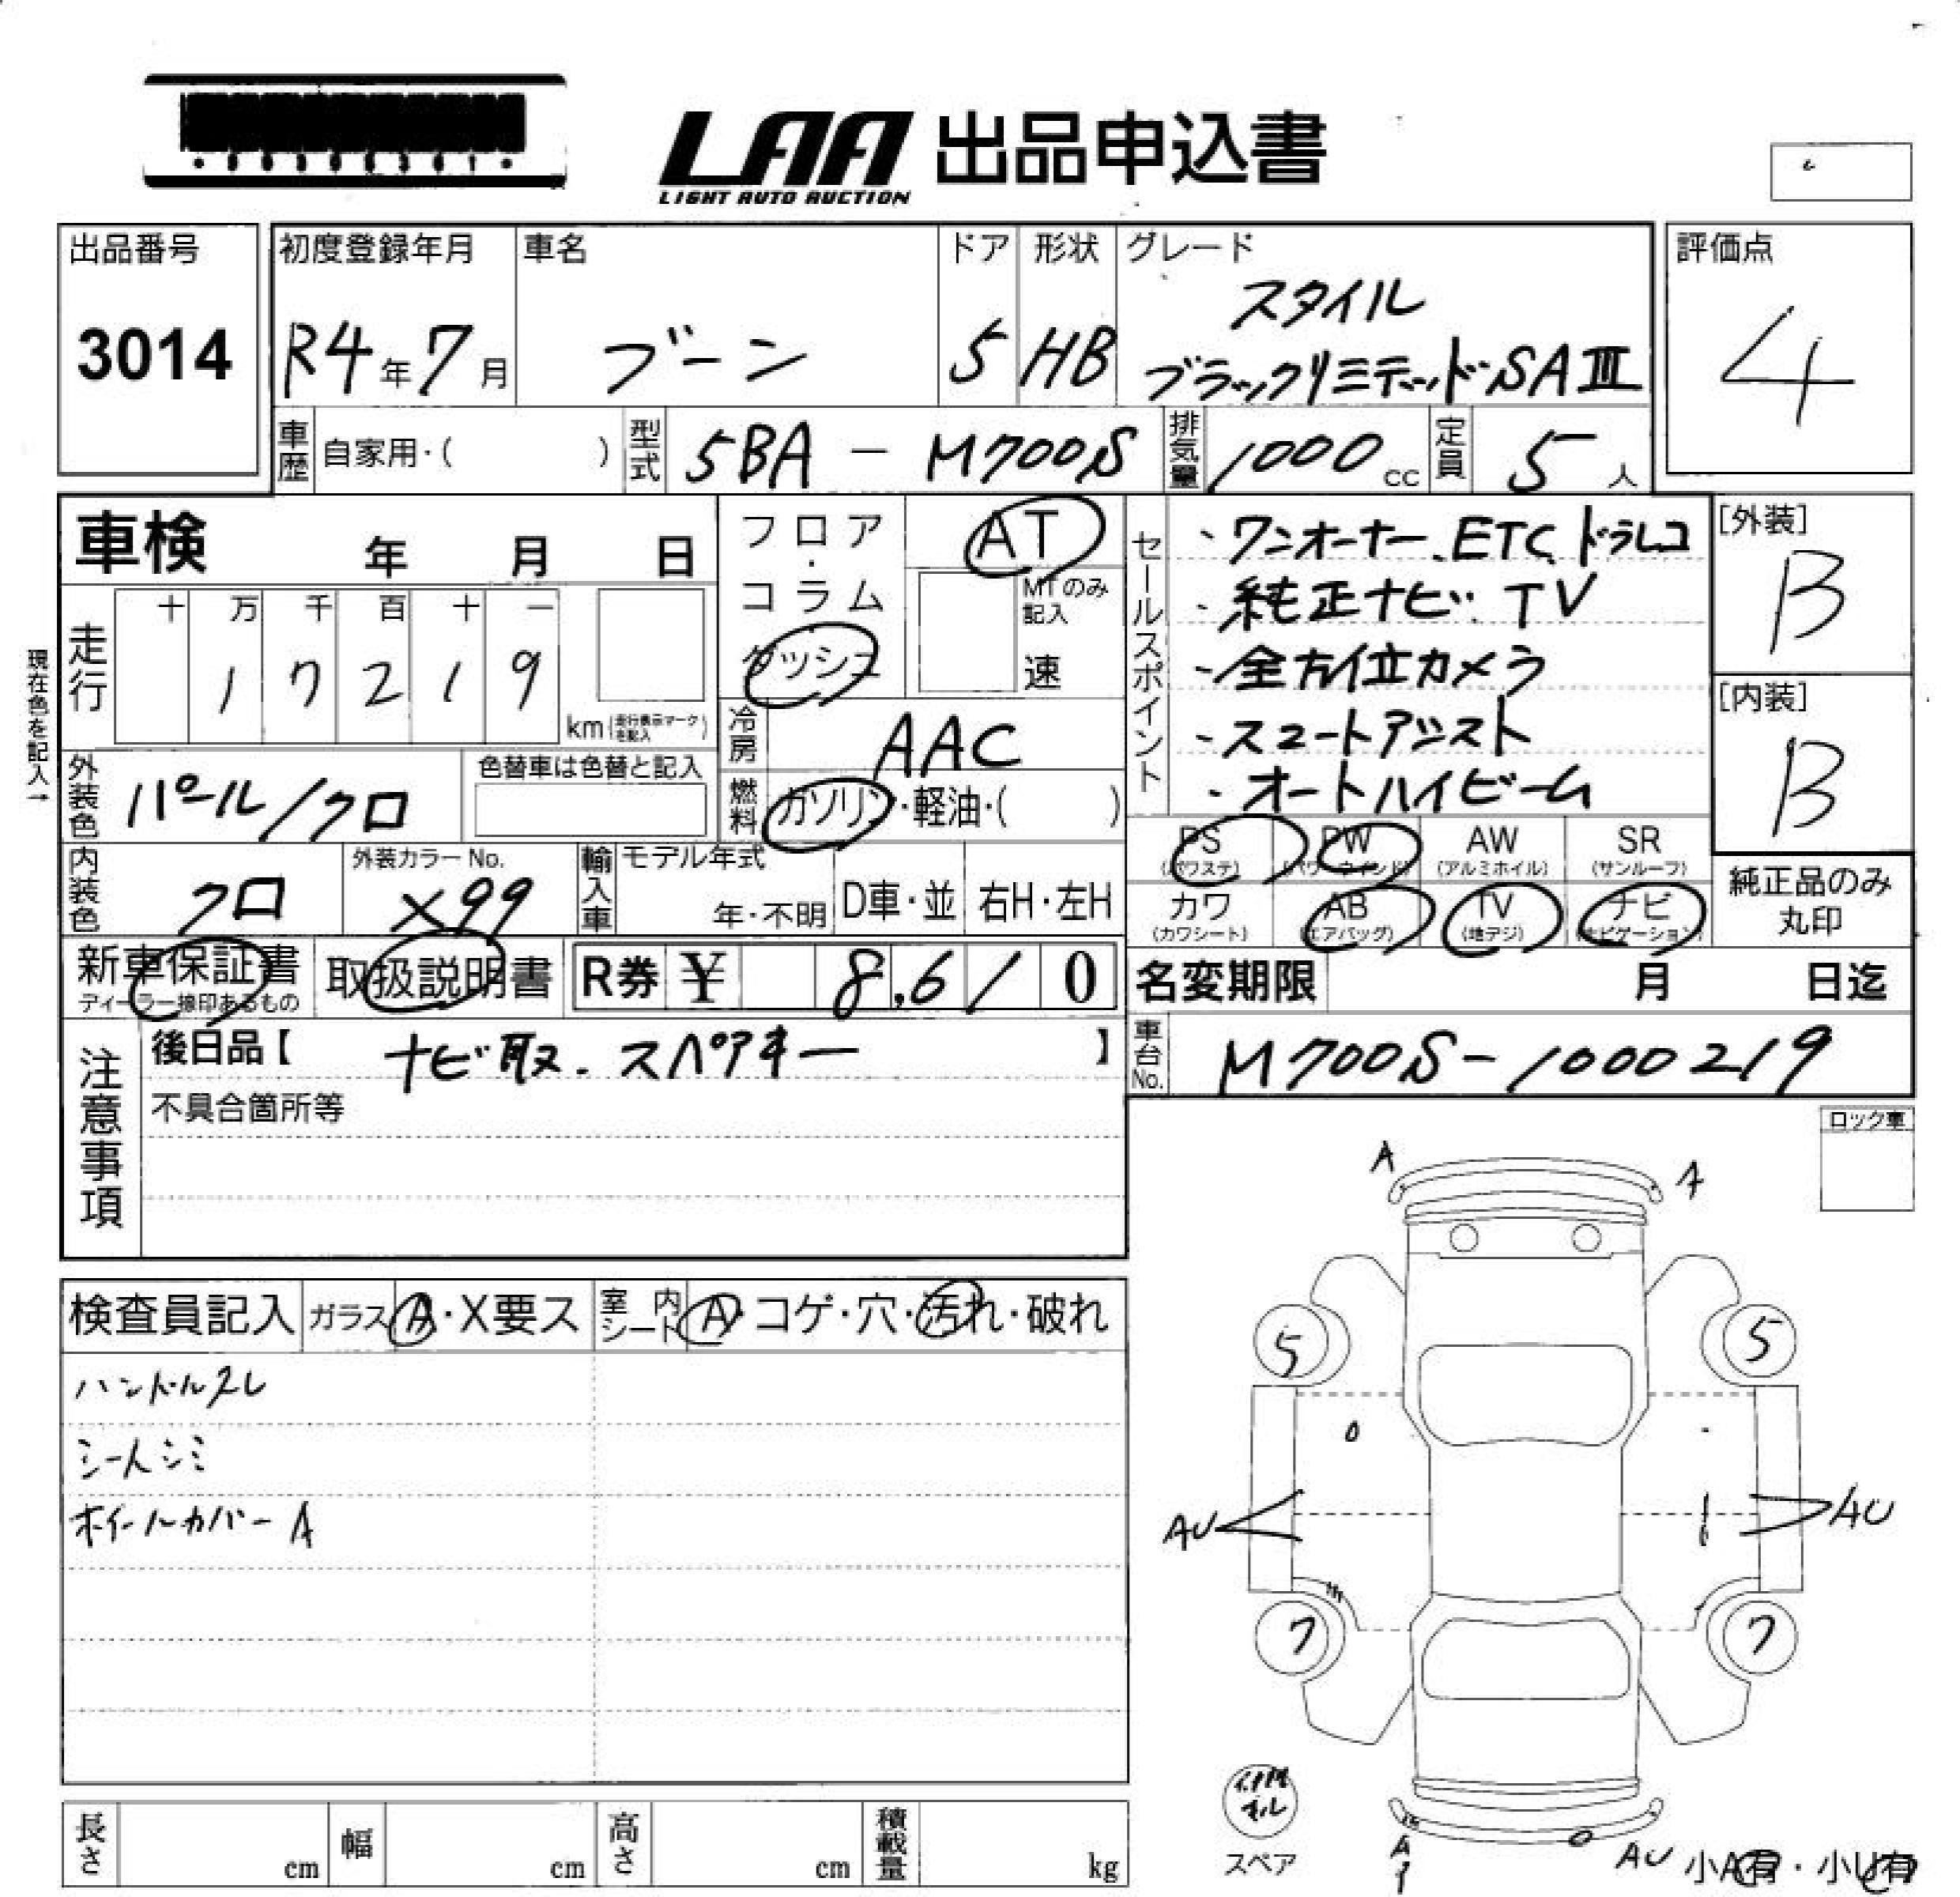 LAA 出品申込書
LIGHT AUTO AUCTION
出品番号
3014
初度登録年月
R4年7月
車名
ブーン
ドア
5
形状
HB
グレード
スタイル
ブラックリミテッド SAⅢ
評価点
4
車歴
自家用・( )
型式
5BA - M700S
排気量
1000cc
定員
5人
車検 年 月 日
フロア・コラム
ダッシュ
AT
MTのみ記入
速
セールスポイント
・ワンオーナー、ETC、ドラレコ
・純正ナビ、TV
・全方位カメラ
・スマートアシスト
・オートハイビーム
[外装]
B
[内装]
B
現在色を記入→
走行
十 万 千 百 十 一
1 7 2 1 9
km (走行表示マークを記入)
冷房
AAC
燃料
ガソリン・軽油・( )
外装色
パール/クロ
色替車は色替と記入
内装色
クロ
外装カラーNo.
X99
輸入車
モデル年式
年・不明
D車・並
右H・左H
PS (パワステ)
PW (パワーウインド)
AW (アルミホイル)
SR (サンルーフ)
カワ (カワシート)
AB (エアバッグ)
TV (地デジ)
ナビ (ナビゲーション)
純正品のみ丸印
新車保証書
ディーラー捺印あるもの
取扱説明書
R券 ¥ 8,610
名変期限 月 日迄
注意事項
後日品【 ナビ取、スペアキー 】
不具合箇所等
車台No.
M700S-1000219
ロック車
検査員記入
ガラス A・X要ス
室内シート A・コゲ・穴・汚れ・破れ
ハンドルスレ
シートシミ
ホイールカバーA
A A
5 5
AU AU
7 7
スペア
A
AU
小A有・小U有
長さ cm
幅 cm
高さ cm
積載量 kg